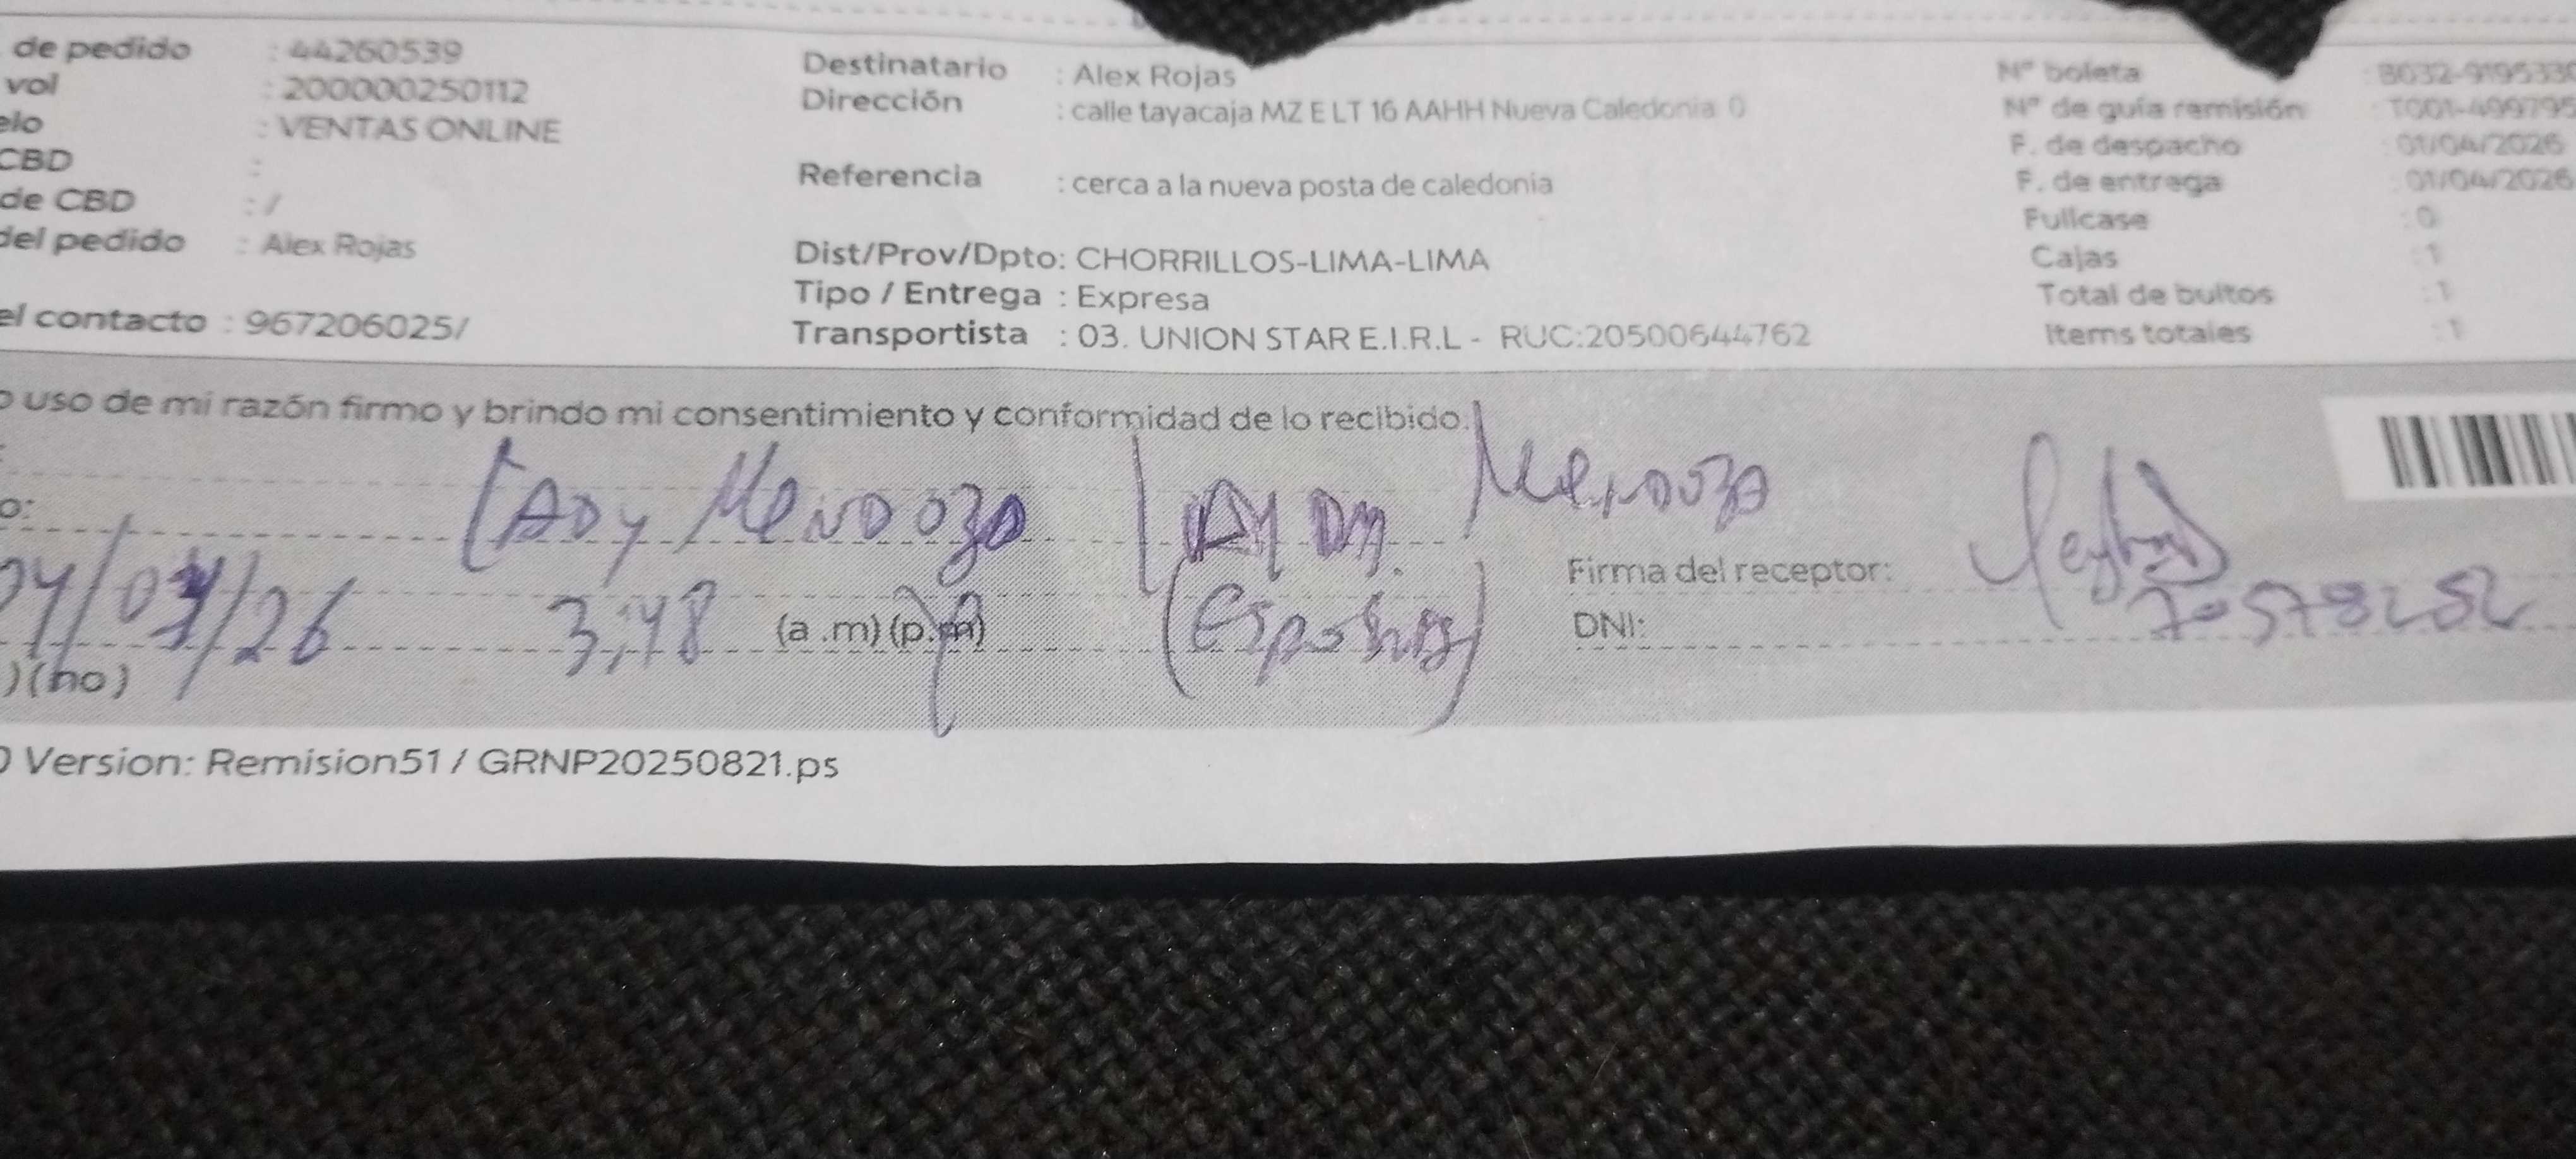 de pedido : 44260539
vol : 200000250112
elo : VENTAS ONLINE
CBD :
de CBD : /
del pedido : Alex Rojas
el contacto : 967206025/
Destinatario : Alex Rojas
Dirección : calle tayacaja MZ E LT 16 AAHH Nueva Caledonia 0
Referencia : cerca a la nueva posta de caledonia
Dist/Prov/Dpto: CHORRILLOS-LIMA-LIMA
Tipo / Entrega : Expresa
Transportista : 03. UNION STAR E.I.R.L - RUC:20500644762
Nº boleta : B032-919533
Nº de guía remisión : T001-499795
F. de despacho : 01/04/2026
F. de entrega : 01/04/2026
Fullcase : 0
Cajas : 1
Total de bultos : 1
Items totales : 1
o uso de mi razón firmo y brindo mi consentimiento y conformidad de lo recibido.
LADy MENDOZA Mendoza
o:
/26 3:48 (a .m) (p.m) (Esposa) Firma del receptor:
DNI: 70578252
) (no)
Version: Remision51 / GRNP20250821.ps